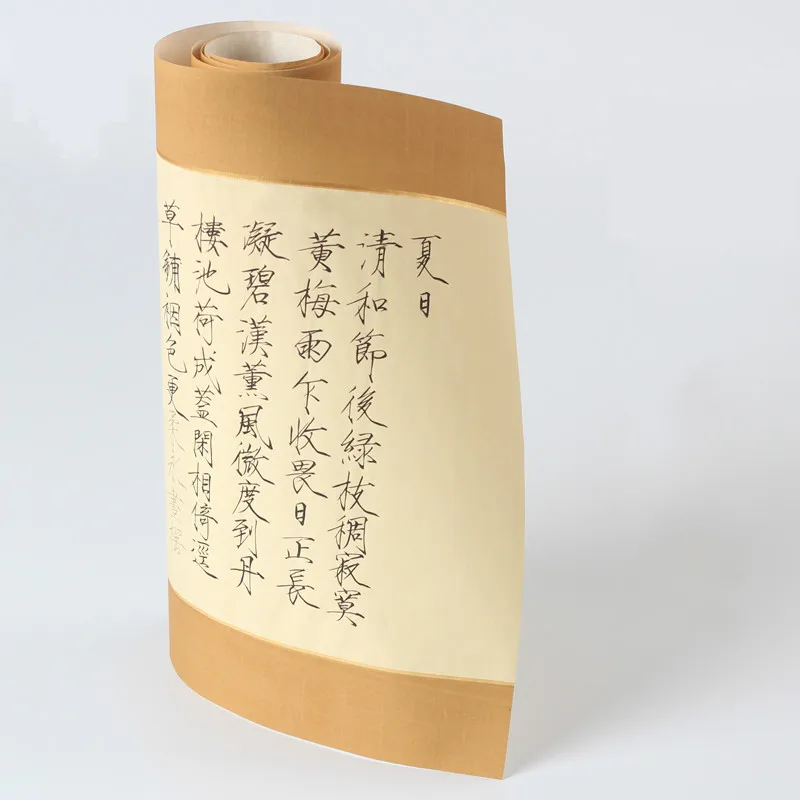 夏日
清和節後緑枝稠寂寞
黄梅雨乍收畏日正長
凝碧漢薰風微度到丹
樓池荷成蓋閑相倚逕
草鋪裀色更